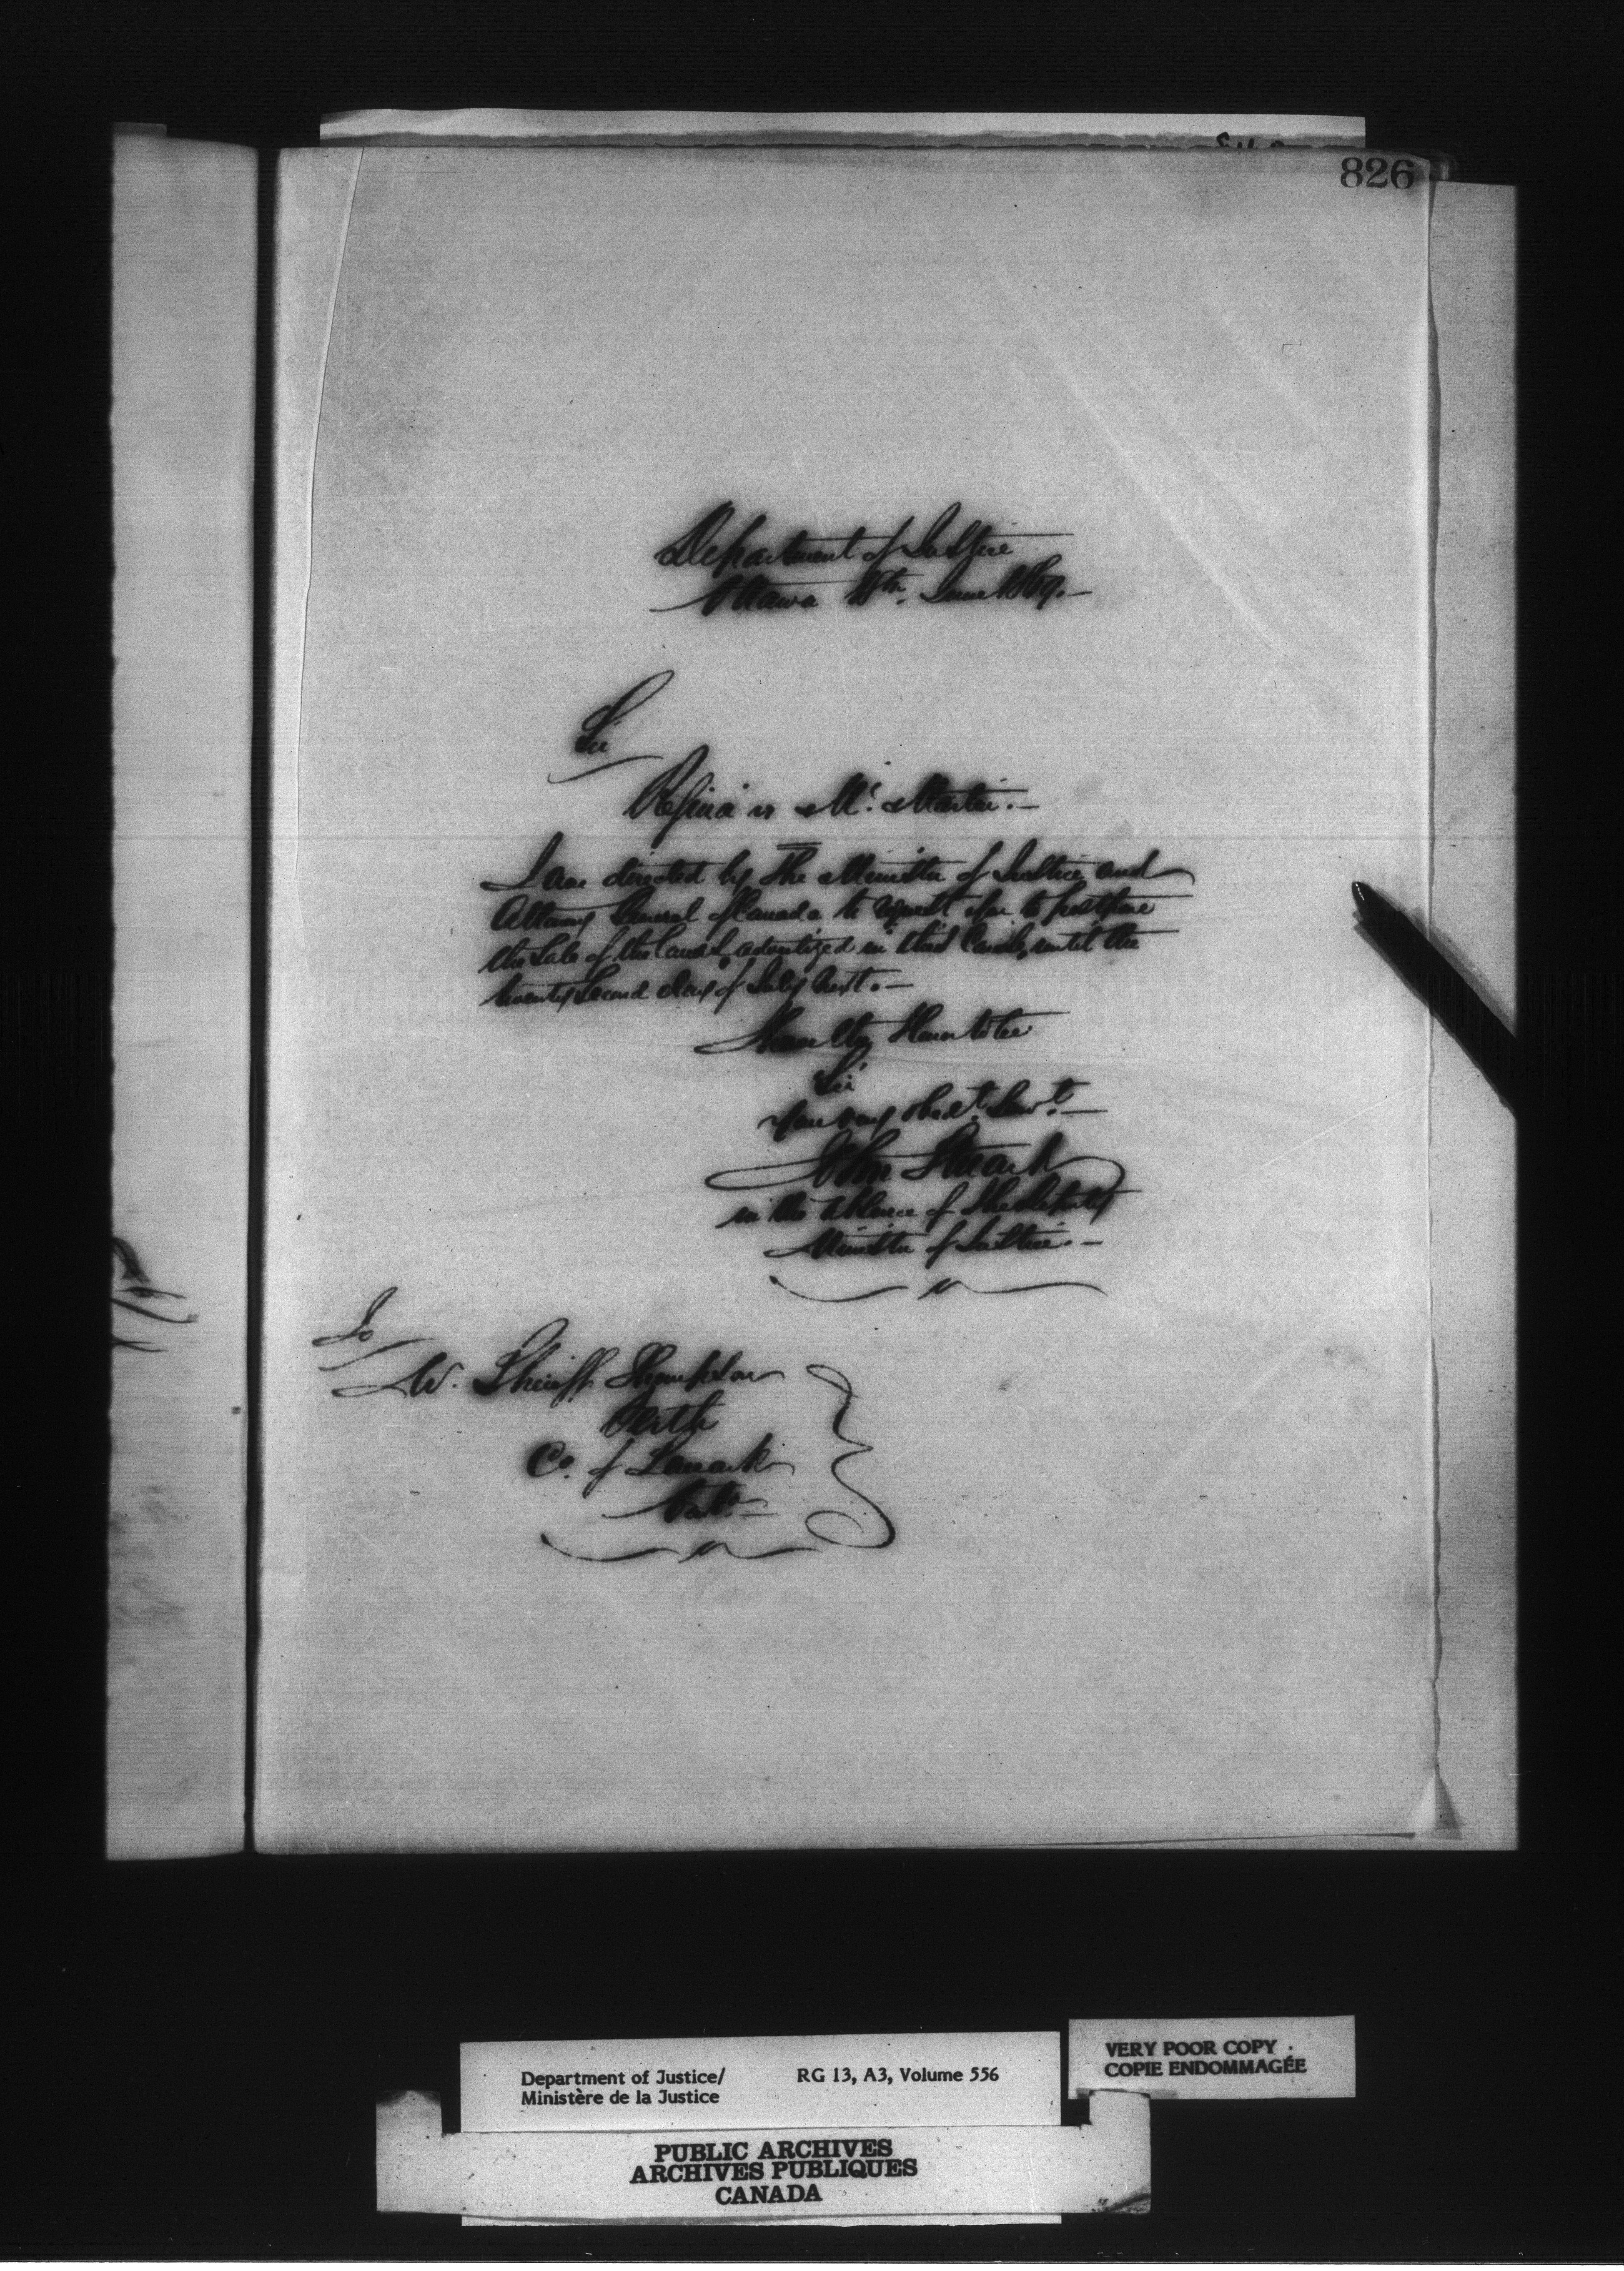 826
Department of Justice
Ottawa 11th. June 1869.—
Sir
Regina vs Mc. Martin.—
I am directed by The Minister of Justice and
Attorney General of Canada to request you to postpone
the Sale of the Lands advertized in this Cause, until the
twenty second day of July next.—
I have the Honor to be
Sir
Your very obedt. Servt.—
John
in the absence of The Deputy
Minister of Justice.—
To
W. Sheriff Thompson
Perth
Co. of Lanark
Onto.
Department of Justice/
Ministère de la Justice
RG 13, A3, Volume 556
VERY POOR COPY
COPIE ENDOMMAGÉE
PUBLIC ARCHIVES
ARCHIVES PUBLIQUES
CANADA